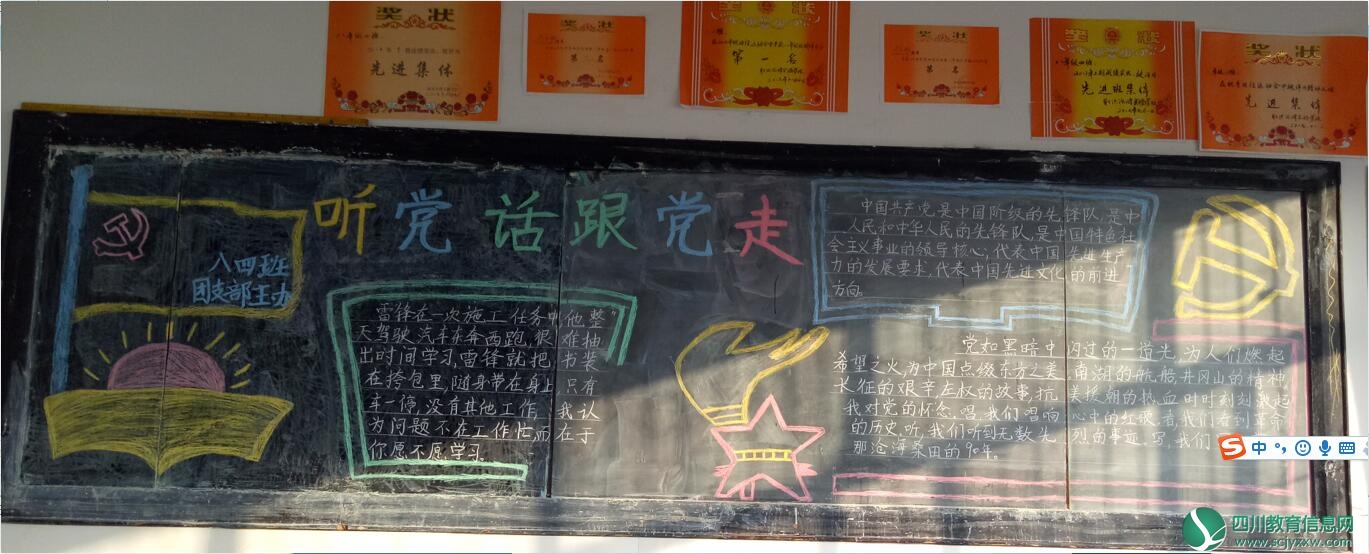 奖状
八年级四班:
先进集体
奖状
第二名
奖状
第一名
奖状
第一名
奖状
八年级四班:
先进班集体
奖状
先进集体
听党话跟党走
八四班
团支部主办
雷锋在一次施工任务中,他整
天驾驶汽车东奔西跑,很难抽
出时间学习,雷锋就把书装
在挎包里,随身带在身上,只有
车一停,没有其他工作
我认
为问题不在工作忙,而在于
你愿不愿学习.
中国共产党是中国阶级的先锋队,是中
人民和中华人民的先锋队,是中国特色社
会主义事业的领导核心,代表中国先进生产
力的发展要求,代表中国先进文化的前进
方向。
党如黑暗中闪过的一道光,为人们燃起
希望之火,为中国点缀东方之美
南湖的航船,井冈山的精神
长征的艰辛,左权的故事,抗
美援朝的热血时时刻刻激起
我对党的怀念.唱,我们唱响
心中的红歌,看,我们看到革命
的历史,听,我们听到无数先
烈的事迹.写,我们
那沧海桑田的90年.
中
四川教育信息网
www.scjyxxw.com